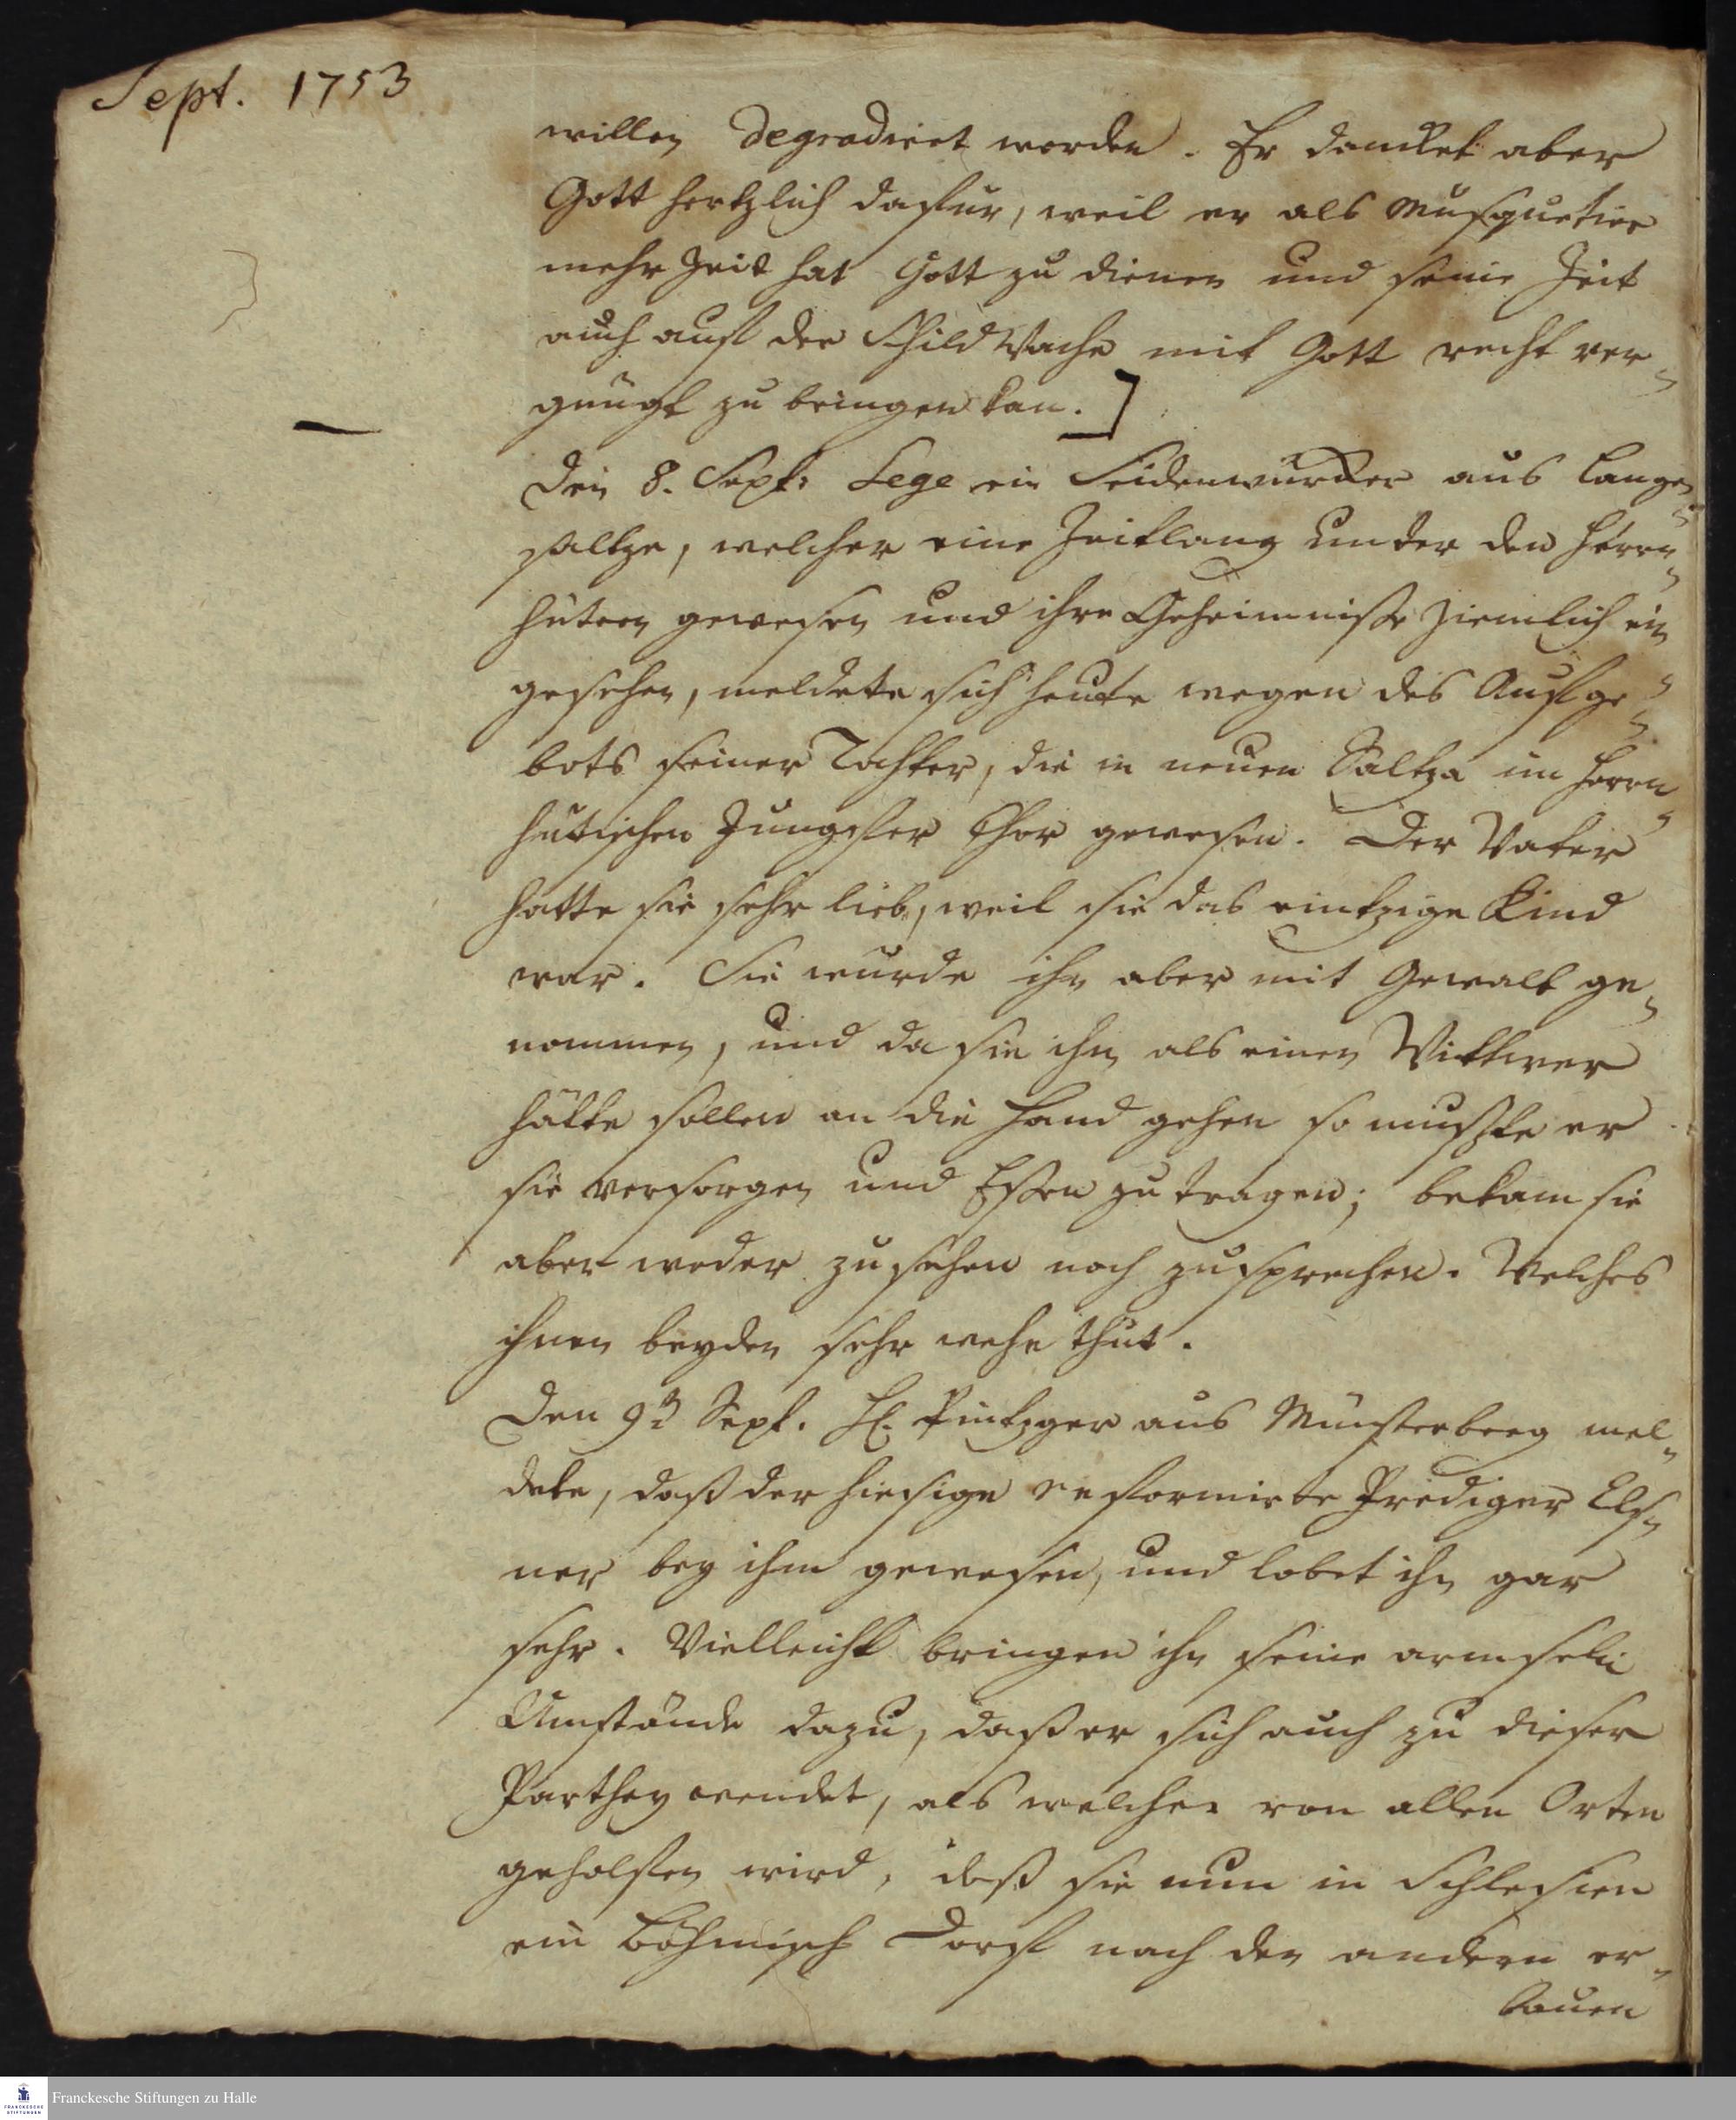 Sept. 1753
willen degradiret worden. Er dancket aber
Gott hertzlich dafür, weil er als Musquetier
mehr Zeit hat Gott zu dienen und seine Zeit
auch auf der Schildwache mit Gott recht ver-
gnügt zu bringen kan. ]
Den 8. Sept. Lege ein Seidenwürcker aus Langen
saltze, welcher eine Zeitlang unter den Herrn-
hütern gewesen und ihre Geheimnisse ziemlich ein
gesehen, meldete sich heute wegen des Aufge-
bots seiner Tochter, die in neuen Saltza im Herrn
hutischen Jungfer Chor gewesen. Der Vater
hatte sie sehr lieb, weil sie das eintzige Kind
war. Sie wurde ihm aber mit Gewalt ge-
nommen, und da sie ihm als einen Wittwer
hätte sollen an die Hand gehen so mußte er
sie versorgen und Essen zu tragen; bekam sie
aber weder zu sehen noch zu sprechen. Welches
ihnen beyden sehr wehe thut.
Den 9. Sept. H. Pintzger aus Münsterberg mel-
dete, daß der hiesige reformirte Prediger Els-
ner bey ihm gewesen, und lobet ihn gar
sehr. Vielleicht bringen ihn seine armseli
Umstände dazu, daß er sich auch zu dieser
Parthey wendet, als welcher von allen Orten
geholfen wird, daß sie nun in Schlesien
ein Böhmisch Dorf nach den andern er-
bauen
Franckesche Stiftungen zu Halle
FRANCKESCHE
STIFTUNGEN